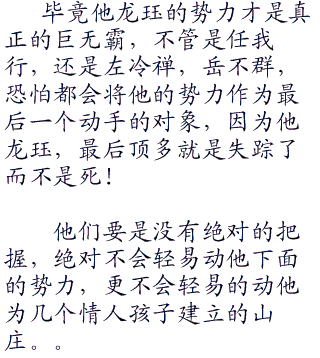 毕竟他龙珏的势力才是真
正的巨无霸，不管是任我
行，还是左冷禅，岳不群，
恐怕都会将他的势力作为最
后一个动手的对象，因为他
龙珏，最后顶多就是失踪了
而不是死！
他们要是没有绝对的把
握，绝对不会轻易动他下面
的势力，更不会轻易的动他
为几个情人孩子建立的山
庄。。